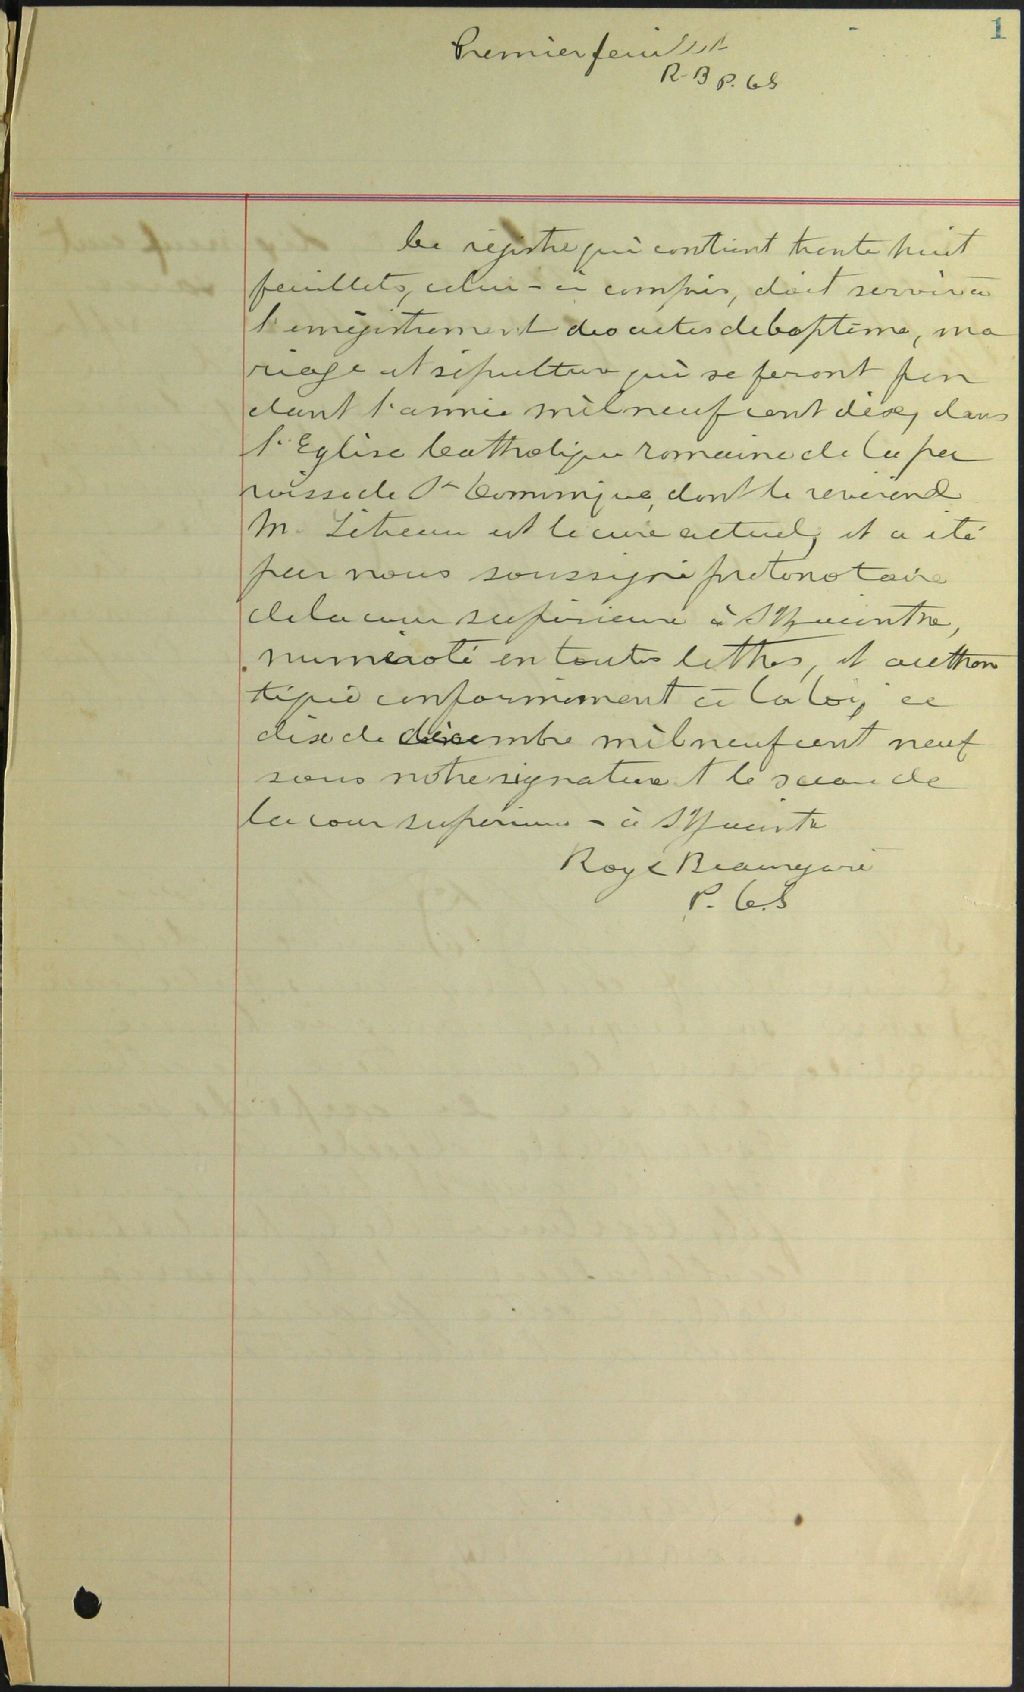 1
Premier feuillet
R-B P. C S
Ce registre qui contient trente huit
feuillets, celui-ci compris, doit servir à
l'enrégistrement des actes de baptême, ma
riage et sépulture qui se feront pen
dant l'année mil neuf cent dix, dans
l'Eglise Catholique romaine de la pa
roisse de St Dominique, dont le révérend
M. est le curé actuel, et a été
par nous soussigné protonotaire
de la cour supérieure à St Hyacinthe,
numéroté en toutes lettres, et authen
tiqué conformément à la loi, ce
dix de décembre mil neuf cent neuf
sous notre signature et le sceau de
la cour supérieure - à St Hyacinthe
Roy & Beauregard
P. C. S